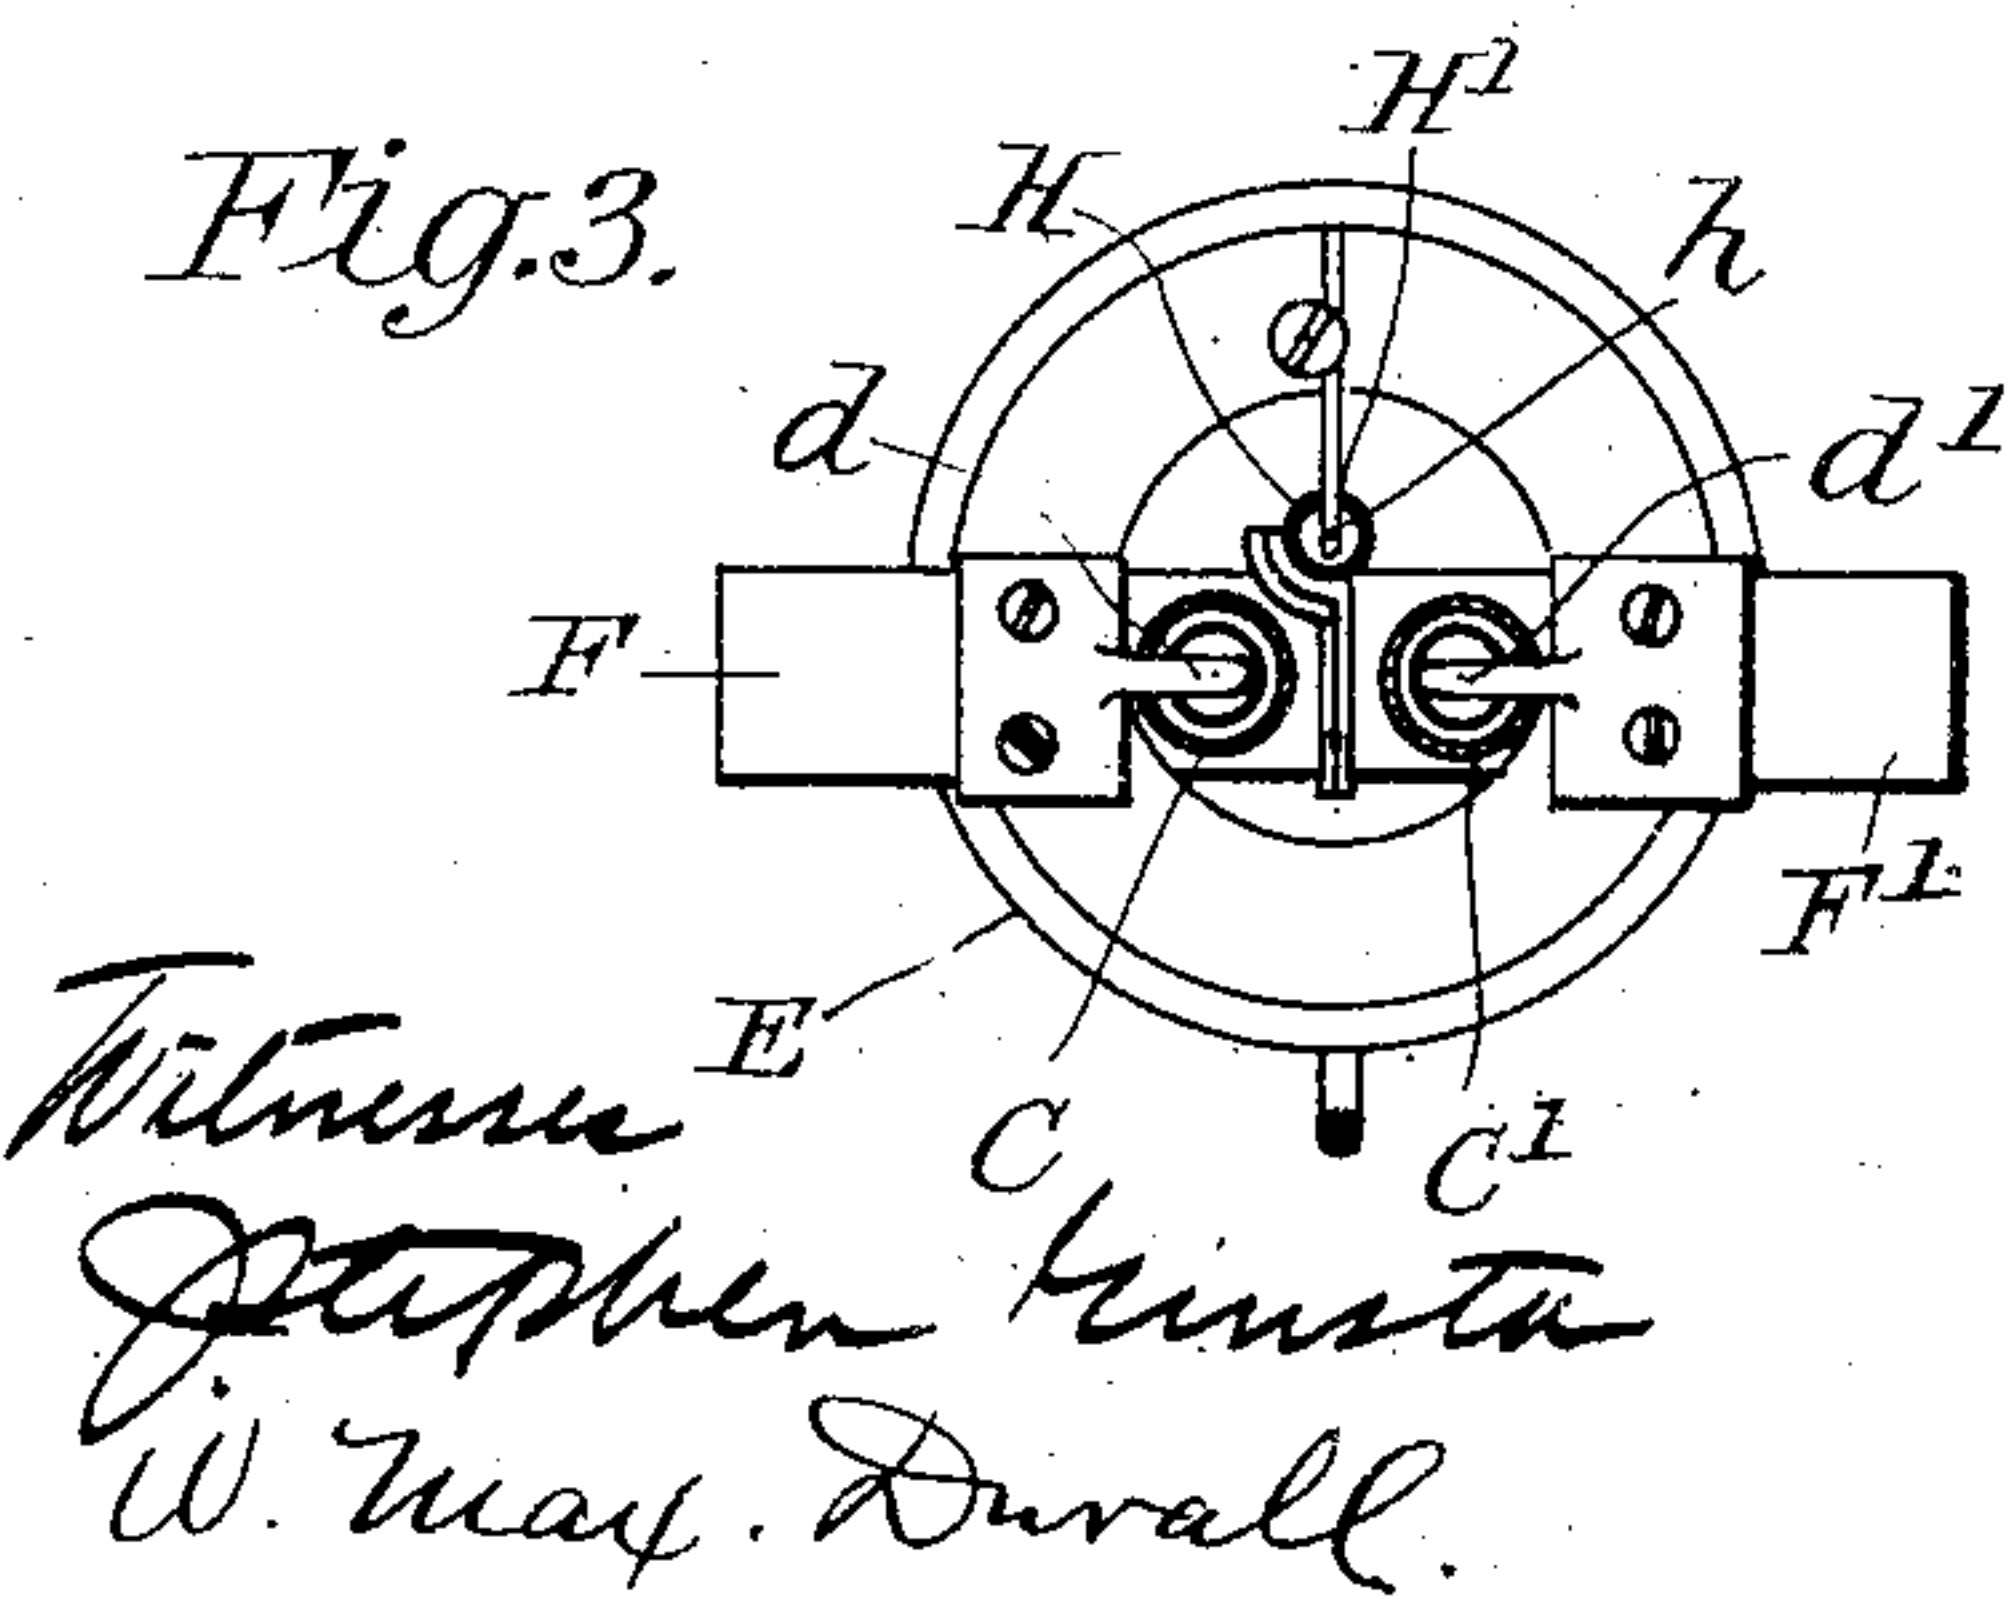 Fig. 3.
H¹
H
h
d
d¹
F
F¹
E
C
C¹
Witnesses
Stephen
W. Max. Duvall.